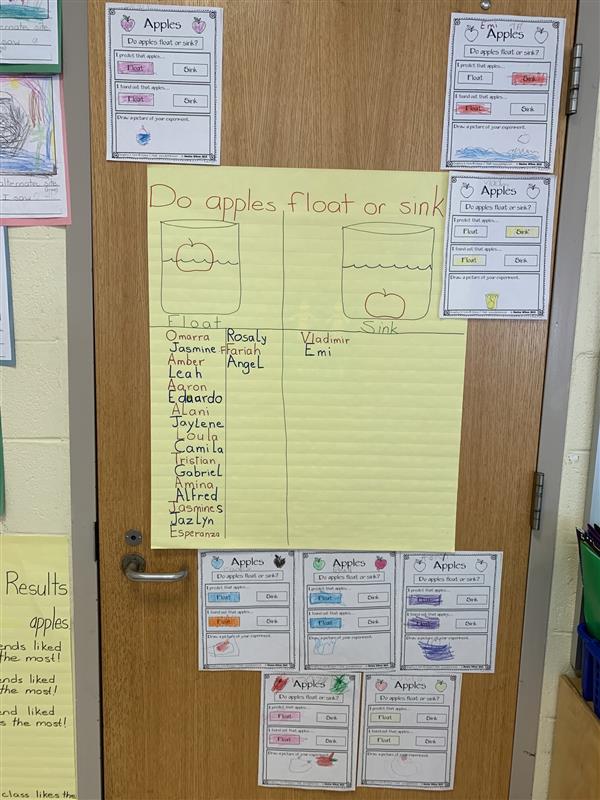 Apples
Do apples float or sink?
I predict that apples...
Float Sink
I found out that apples...
Float Sink
Draw a picture of your experiment.
Emi
Apples
Do apples float or sink?
I predict that apples...
Float Sink
I found out that apples...
Float Sink
Draw a picture of your experiment.
Apples
Do apples float or sink?
I predict that apples...
Float Sink
I found out that apples...
Float Sink
Draw a picture of your experiment.
alternate site
I saw a
alternate site
I saw
Do apples float or sink
Float
Sink
Omarra
Jasmine
Amber
Leah
Aaron
Eduardo
ALani
Jaylene
Loula
Camila
Tristian
Gabriel
Amina
Alfred
Jasmines
Jazlyn
Esperanza
Rosaly
Fariah
AngeL
Vladimir
Emi
Results
apples
ends liked
the most!
ends liked
the most!
end liked
s the most!
class likes the
Apples
Do apples float or sink?
I predict that apples...
Float Sink
I found out that apples...
Float Sink
Draw a picture of your experiment.
Apples
Do apples float or sink?
I predict that apples...
Float Sink
I found out that apples...
Float Sink
Draw a picture of your experiment.
Apples
Do apples float or sink?
I predict that apples...
Float Sink
I found out that apples...
Float Sink
Draw a picture of your experiment.
Apples
Do apples float or sink?
I predict that apples...
Float Sink
I found out that apples...
Float Sink
Draw a picture of your experiment.
Apples
Do apples float or sink?
I predict that apples...
Float Sink
I found out that apples...
Float Sink
Draw a picture of your experiment.